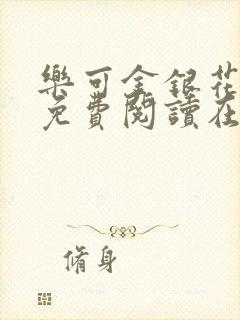 樂可金銀花
免費閱讀在
脩身